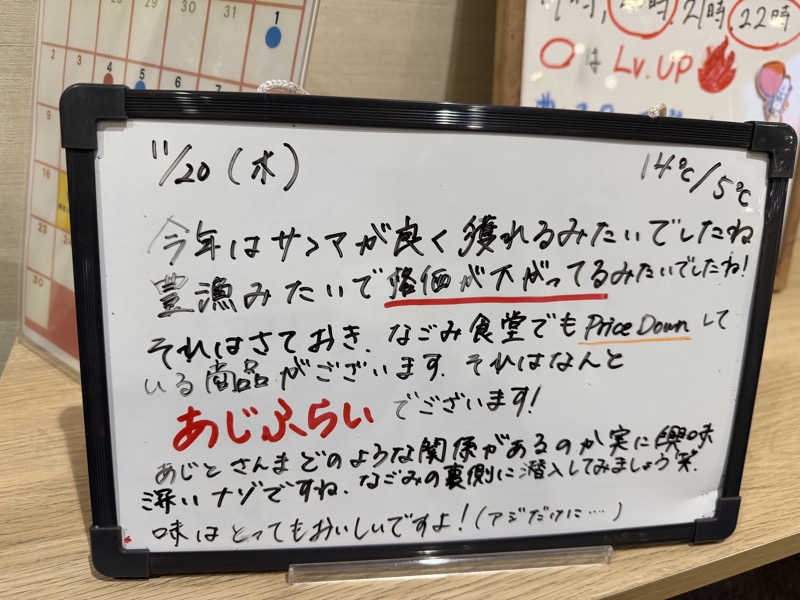 30 31 1
2 3 4 5 6
9
16
23 24
30
17時, 21時, 22時
○は Lv.UP
11/20(木) 14℃/5℃
今年はサンマが良く獲れるみたいでしたね
豊漁みたいで 価が下がってるみたいでしたね!
それはさておき、なごみ食堂でもPrice Downして
いる商品がございます。それはなんと
あじふらい でございます!
あじとさんまどのような関係があるのか実に興味
深いナゾですね、なごみの裏側に潜入してみましょう笑.
味はとってもおいしいですよ!(アジだけに…)